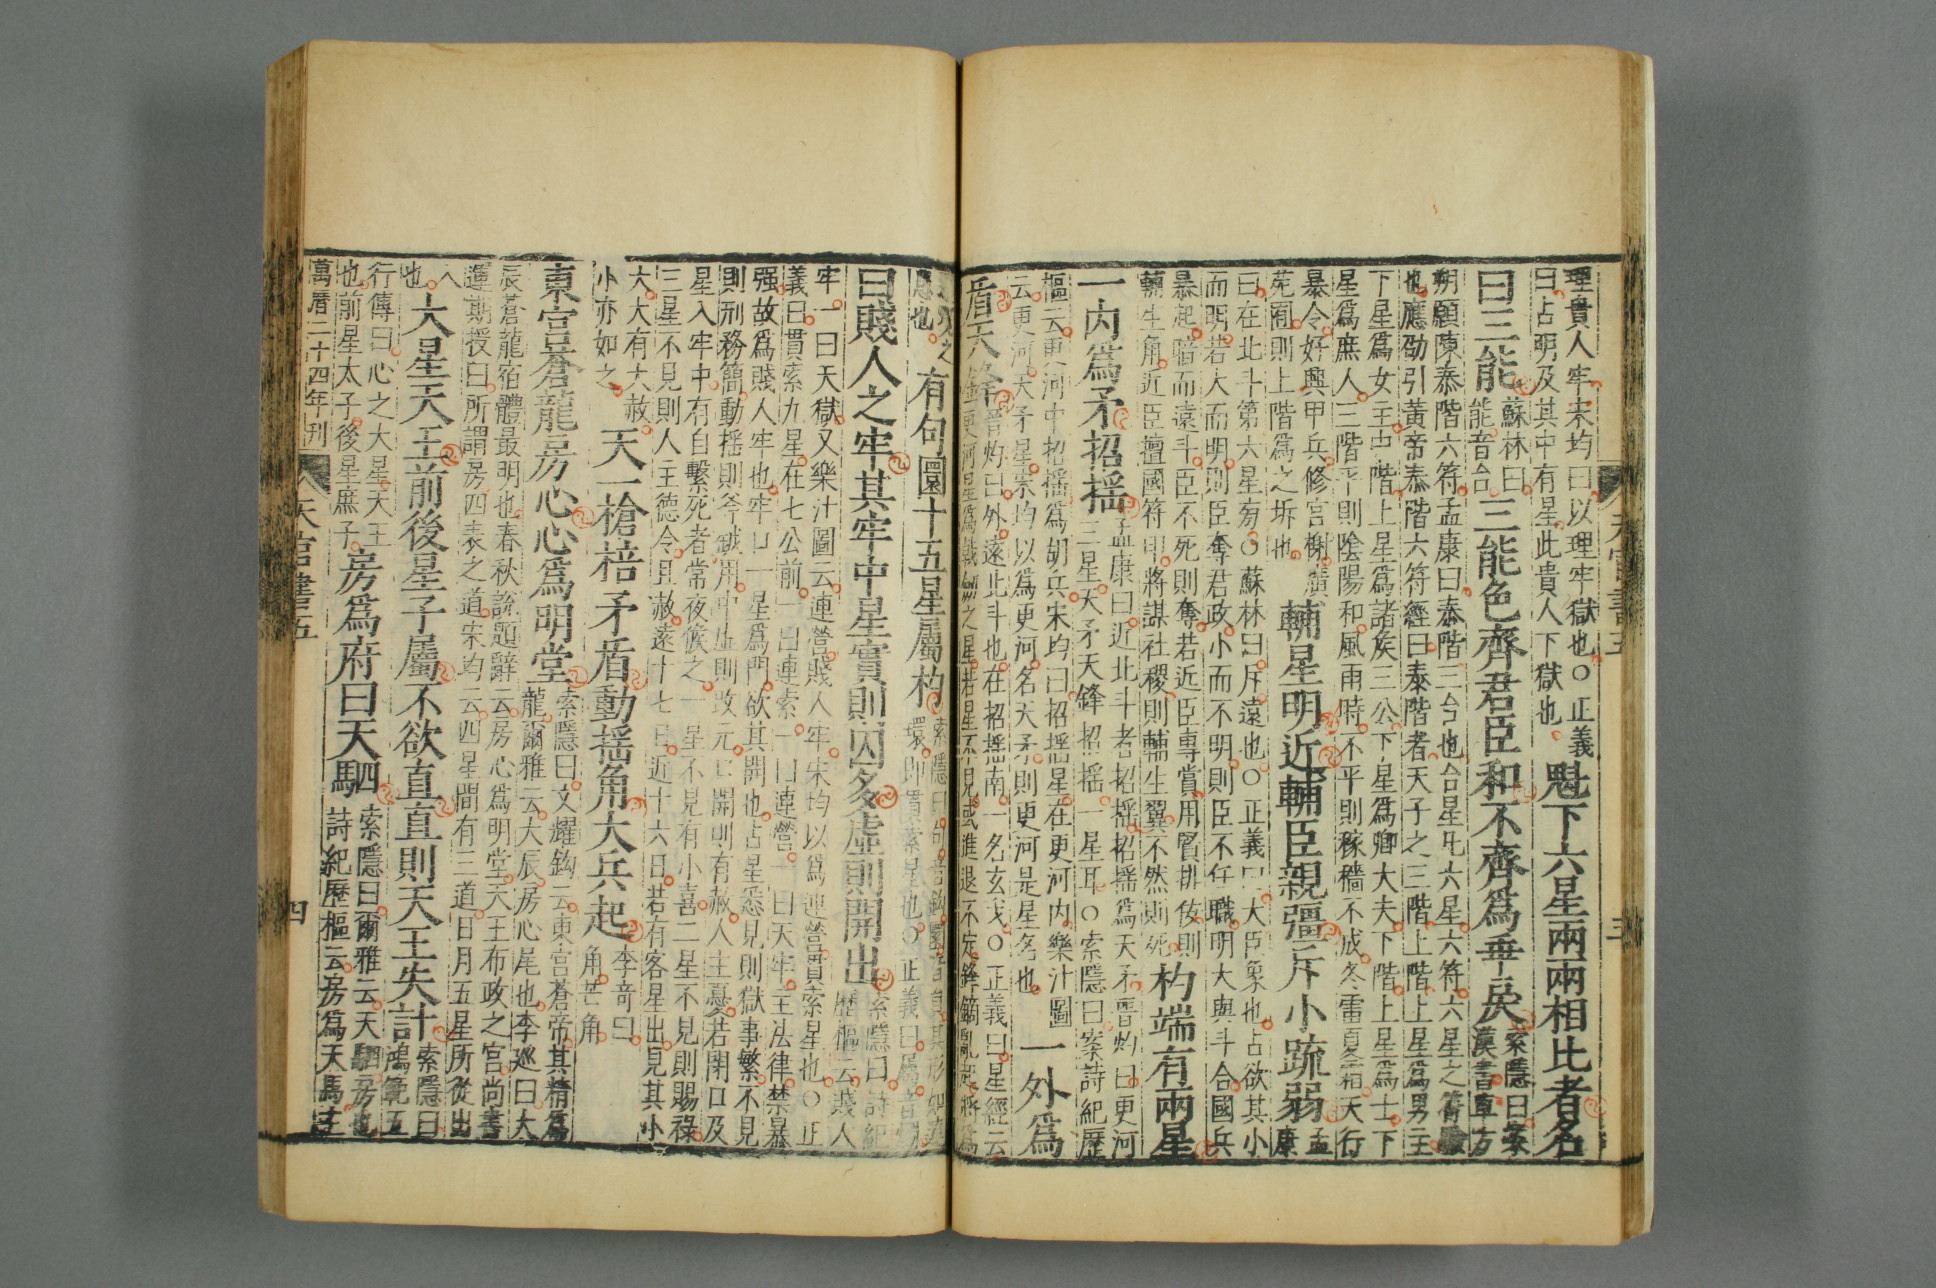 理貴人牢宋均曰以理牢獄也○正義
曰占明及其中有星此貴人下獄也
魁下六星兩兩相比者名
曰三能
蘇林曰
能音台
三能色齊君臣和不齊爲乖戾
索隱曰案
漢書東方
朔願陳泰階六符孟康曰泰階三台也台星凡六星六符六星之符驗
也應劭引黃帝泰階六符經曰泰階者天子之三階上階上星爲男主
下星爲女主中階上星爲諸矦三公下星爲卿大夫下階上星爲士下
星爲庶人三階平則陰陽和風雨時不平則稼穡不成冬雷夏霜天行
暴令好興甲兵修宮榭廣
苑囿則上階爲之坼也
輔星明近輔臣親彊斥小疏弱
孟
康
曰在北斗第六星旁○蘇林曰斥遠也○正義曰大臣象也占欲其小
而明若大而明則臣奪君政小而不明則臣不任職明大與斗合國兵
暴起暗而遠斗臣不死則奪若近臣專賞用賢排佞則
輔生角近臣擅國符印將謀社稷則輔生翼不然則死
杓端有兩星
一內爲矛招搖
孟康曰近北斗者招搖招搖爲天矛晉灼曰更河
三星天矛天鋒招搖一星耳○索隱曰案詩紀歷
樞云更河中招搖爲胡兵宋均曰招搖星在更河內樂汁圖
云更河天矛星宋均以爲更河名天矛則更河是星名也
一外爲
盾天鋒
晉灼曰外遠北斗也在招搖南一名玄戈○正義曰星經云
有句圜十五星屬杓
曰賤人之牢其牢中星實則囚多虛則開出
索隱曰詩紀
歷樞云賤人
牢一曰天獄又樂汁圖云連營賤人牢宋均以爲連營貫索星也○正
義曰貫索九星在七公前一曰連索一曰連營一曰天牢主法律禁暴
强故爲賤人牢也牢口一星爲門欲其開也占星悉見則獄事繁不見
則刑務簡動搖則斧鉞用中虛則改元口開則有赦人主憂若閉口及
星入牢中有自繫死者常夜候之一星不見有小喜二星不見則賜祿
三星不見則人主德令且赦遠十七日近十六日若有客星出見其小
大大有大赦
小亦如之
天一槍棓矛盾動搖角大兵起
李奇曰
角芒角
東宮蒼龍房心心爲明堂
索隱曰文耀鉤云東宮蒼帝其精爲
龍爾雅云大辰房心尾也李巡曰大
辰蒼龍宿體最明也春秋說題辭云房心爲明堂天王布政之宮尚書
運期授曰所謂房四表之道宋均云四星間有三道日月五星所從出
入
也
大星天王前後星子屬不欲直直則天王失計
索隱曰
鴻範五
行傳曰心之大星天王
也前星太子後星庶子
房爲府曰天駟
索隱曰爾雅云天駟房也
詩紀歷樞云房爲天馬主
萬曆二十四年刊
天官書五
四